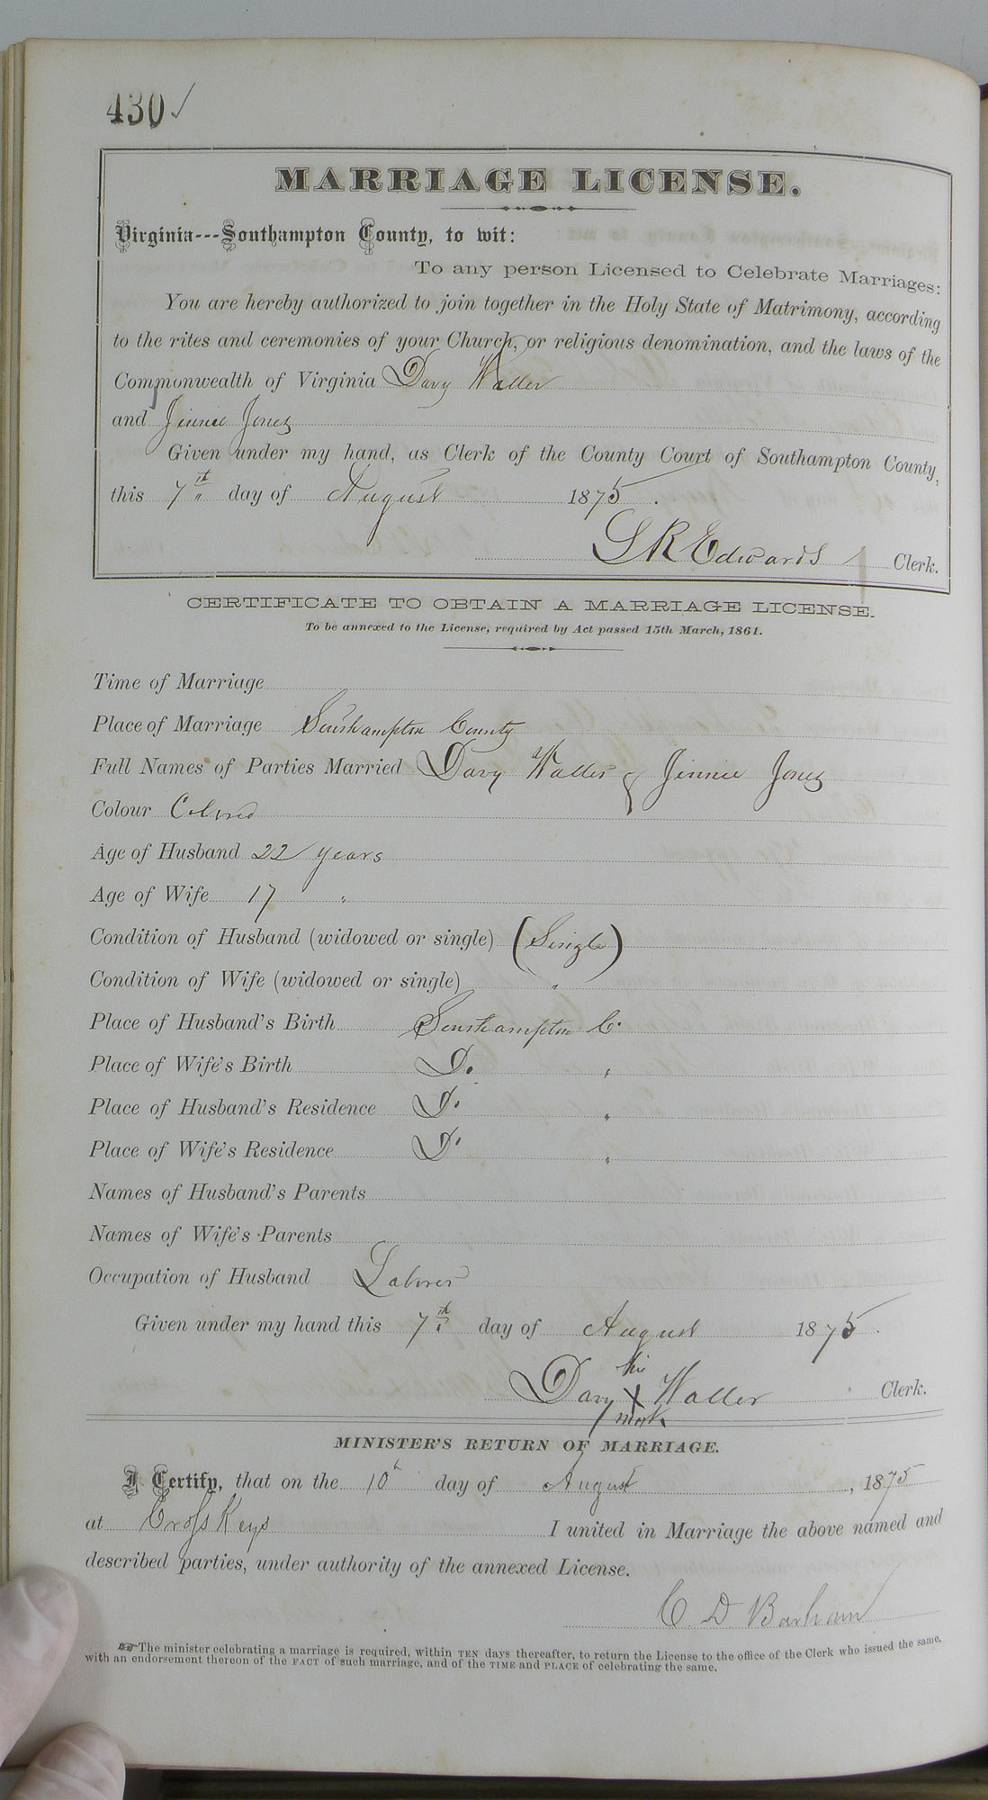 430 ✓
MARRIAGE LICENSE.
Virginia---Southampton County, to wit:
To any person Licensed to Celebrate Marriages:
You are hereby authorized to join together in the Holy State of Matrimony, according
to the rites and ceremonies of your Church, or religious denomination, and the laws of the
Commonwealth of Virginia Davy Waller
and Jinnie Jones
Given under my hand, as Clerk of the County Court of Southampton County,
this 7th day of August 1875.
L R Edwards Clerk.
CERTIFICATE TO OBTAIN A MARRIAGE LICENSE.
To be annexed to the License, required by Act passed 15th March, 1861.
Time of Marriage
Place of Marriage Southampton County
Full Names of Parties Married Davy Waller & Jinnie Jones
Colour Colored
Age of Husband 22 years
Age of Wife 17 "
Condition of Husband (widowed or single) (Single)
Condition of Wife (widowed or single) "
Place of Husband's Birth Southampton Co.
Place of Wife's Birth Do "
Place of Husband's Residence Do "
Place of Wife's Residence Do "
Names of Husband's Parents
Names of Wife's Parents
Occupation of Husband Laborer
Given under my hand this 7th day of August 1875.
his
Davy X Waller Clerk.
mark
MINISTER'S RETURN OF MARRIAGE.
I Certify, that on the 10th day of August, 1875
at Cross Keys I united in Marriage the above named and
described parties, under authority of the annexed License.
C. D Barham
☞ The minister celebrating a marriage is required, within TEN days thereafter, to return the License to the office of the Clerk who issued the same,
with an endorsement thereon of the FACT of such marriage, and of the TIME and PLACE of celebrating the same.